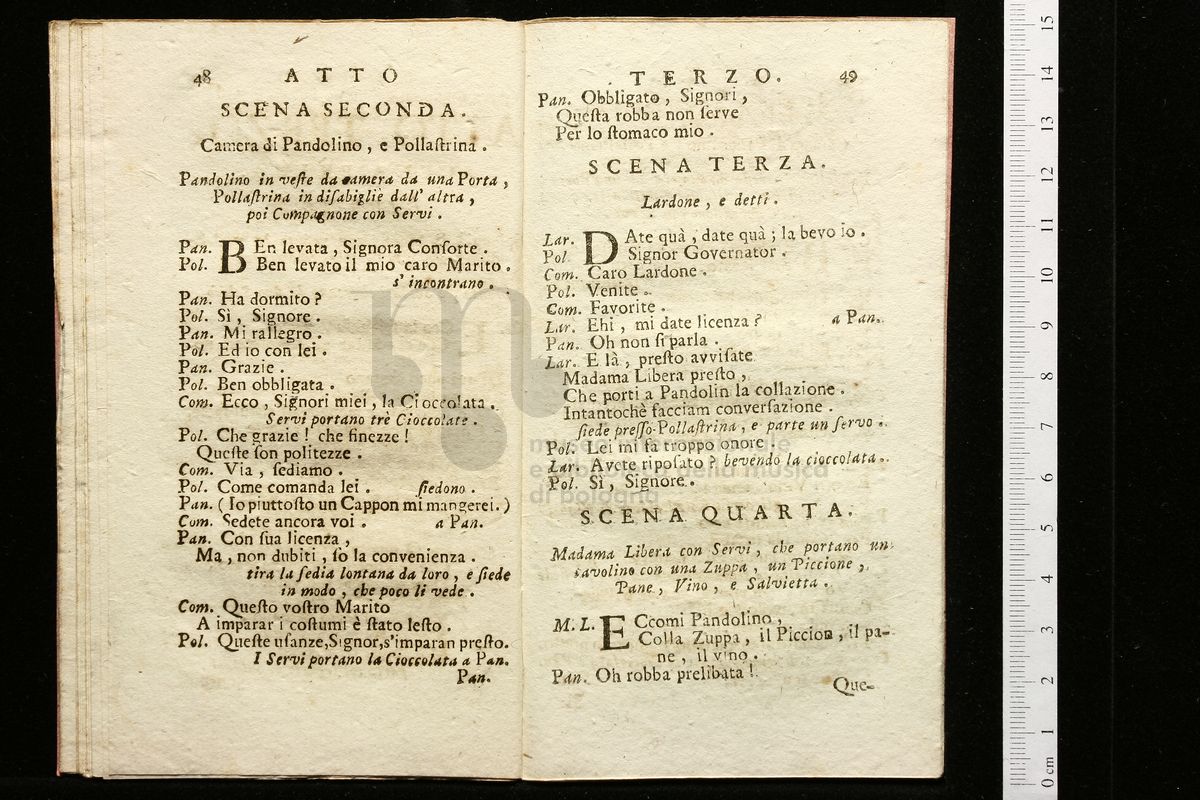 48 ATTO
SCENA SECONDA.
Camera di Pandolino, e Pollaſtrina.
Pandolino in veſte da camera da una Porta,
Pollaſtrina in diſabigliè dall' altra,
poi Compagnone con Servi.
Pan. BEn levata, Signora Conſorte.
Pol. Ben levato il mio caro Marito.
s' incontrano.
Pan. Ha dormito?
Pol. Sì, Signore.
Pan. Mi rallegro.
Pol. Ed io con lei.
Pan. Grazie.
Pol. Ben obbligata.
Com. Ecco, Signori miei, la Cioccolata.
Servi portano trè Cioccolate.
Pol. Che grazie! che finezze!
Queſte ſon politezze.
Com. Via, ſediamo.
Pol. Come comanda lei. ſiedono.
Pan. (Io piuttoſto un Cappon mi mangerei.)
Com. Sedete ancora voi. a Pan.
Pan. Con ſua licenza,
Ma, non dubiti, ſo la convenienza.
tira la ſedia lontana da loro, e ſiede
in modo, che poco li vede.
Com. Queſto voſtro Marito
A imparar i coſtumi è ſtato leſto.
Pol. Queſte uſanze,Signor,s'imparan preſto.
I Servi portano la Cioccolata a Pan.
Pan.
TERZO. 49
Pan. Obbligato, Signori,
Queſta robba non ſerve
Per lo ſtomaco mio.
SCENA TERZA.
Lardone, e detti.
Lar. DAte quà, date quà; la bevo io.
Pol. Signor Governator.
Com. Caro Lardone.
Pol. Venite.
Com. Favorite.
Lar. Ehi, mi date licenza? a Pan.
Pan. Oh non ſi parla.
Lar. E là, preſto avviſate
Madama Libera preſto,
Che porti a Pandolin la collazione.
Intantochè facciam converſazione.
ſiede preſſo Pollaſtrina, e parte un ſervo.
Pol. Lei mi fa troppo onore!
Lar. Avete ripoſato? bevendo la cioccolata.
Pol. Sì, Signore.
SCENA QUARTA.
Madama Libera con Servi, che portano un
tavolino con una Zuppa, un Piccione,
Pane, Vino, e Salvietta.
M. L. ECcomi Pandolino,
Colla Zuppa, il Piccion, il pa-
ne, il vino.
Pan. Oh robba prelibata!
Que-
museo internazionale
e biblioteca della musica
di bologna
15
14
13
12
11
10
9
8
7
6
5
4
3
2
1
0 cm